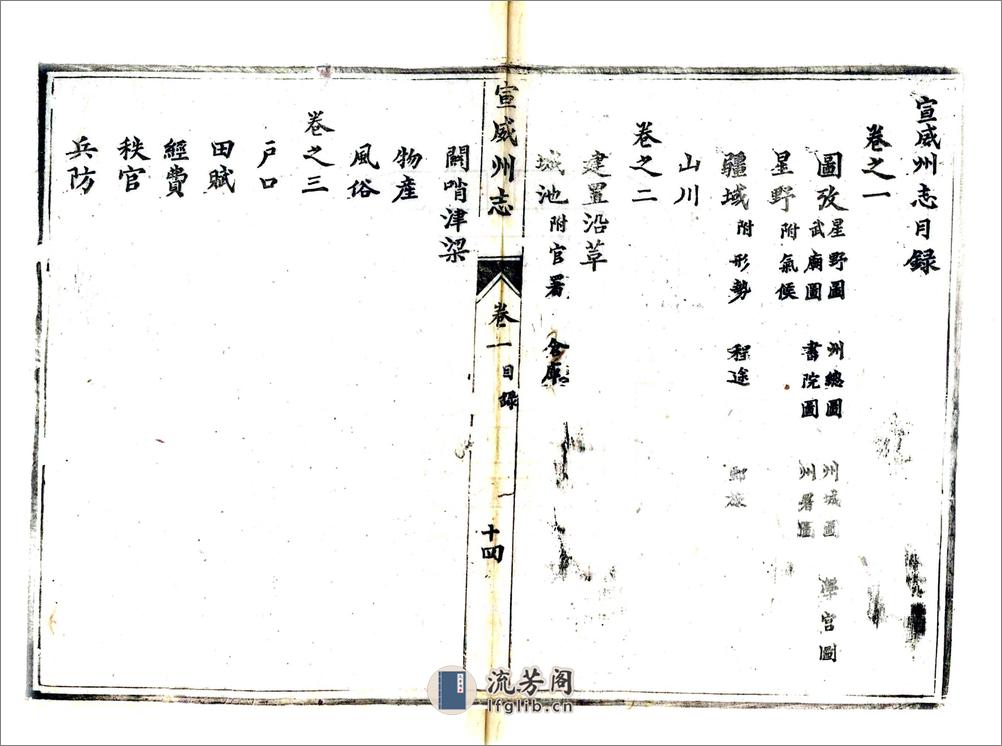 宣威州志目録
卷之一
圖攷 星野圖 洲總圖 州城圖 學宫圖
武廟圖 書院圖 州署圖
星野 附氣候
疆域 附形勢 程途
山川
卷之二
建置沿革
城池 附官署 倉庫
宣威州志 卷一 目録 十四
關哨津梁
物產
風俗
卷之三
戶口
田賦
經費
秩官
兵防
流芳阁
lfglib.cn